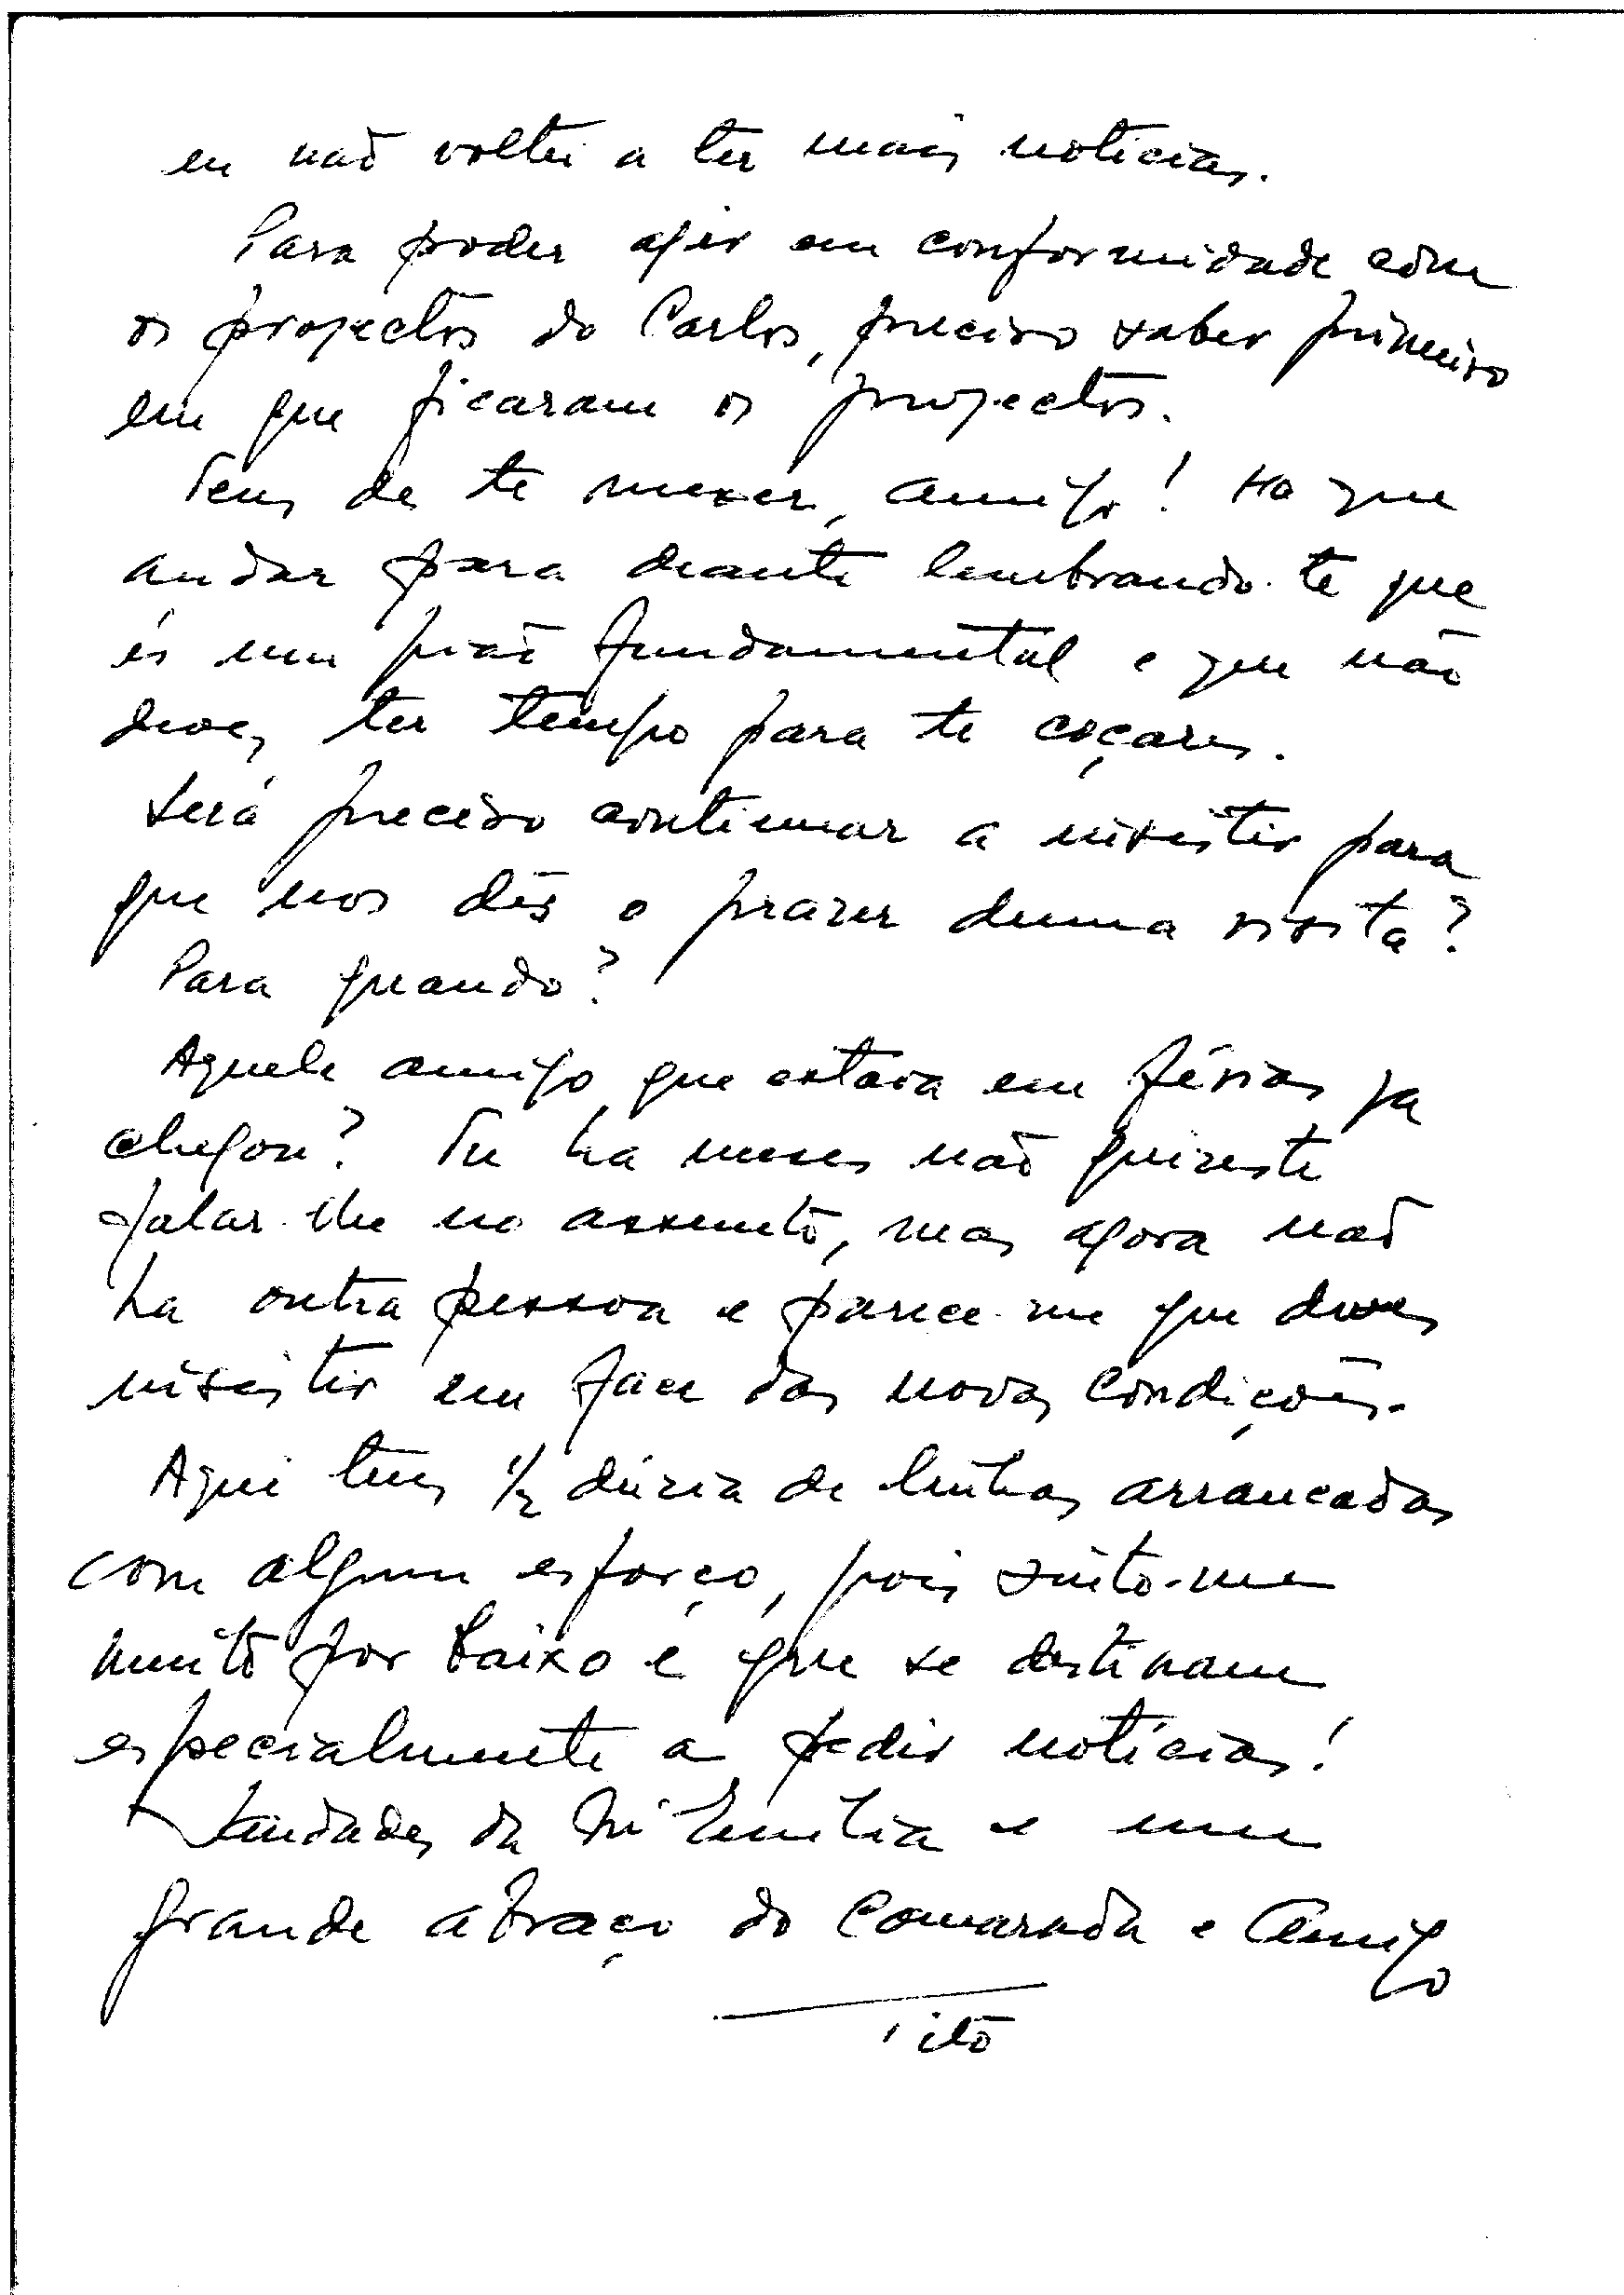 eu não voltei a ter mais noticias.
Para poder agir em conformidade com
os projectos do Carlos, preciso saber primeiro
em que ficaram os projectos.
Tens de te mexer, amigo! Ha que
andar para deante lembrando-te que
és um pião fundamental e que não
deves ter tempo para te coçares.
Será preciso continuar a insistir para
que nos dês o prazer duma visita?
Para quando?
Aquele amigo que estava em férias ja
chegou? Tu ha meses não quizeste
falar-lhe no assunto, mas agora não
ha outra pessoa e parece-me que deves
insistir em face das novas condições.
Aqui tens 1/2 dúzia de linhas arrancadas
com algum esforço, pois sinto-me
muito por baixo e que se destinam
especialmente a pedir notícias!
Saudades da Mª Emilia e um
grande abraço do Camarada e Amigo
Tito